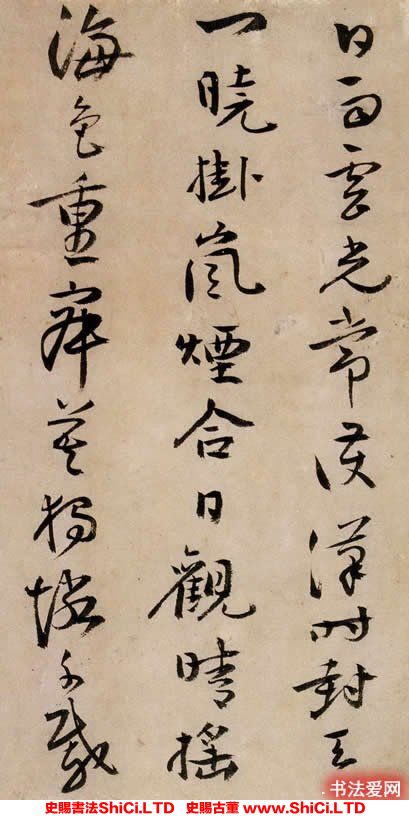 日雲光常護漢時封天
門曉掛嵐煙合日觀晴搖
海色重獨憐千載
.书法爱网
史賜書法ShiCi.LTD 史賜古董 www.ShiCi.LTD